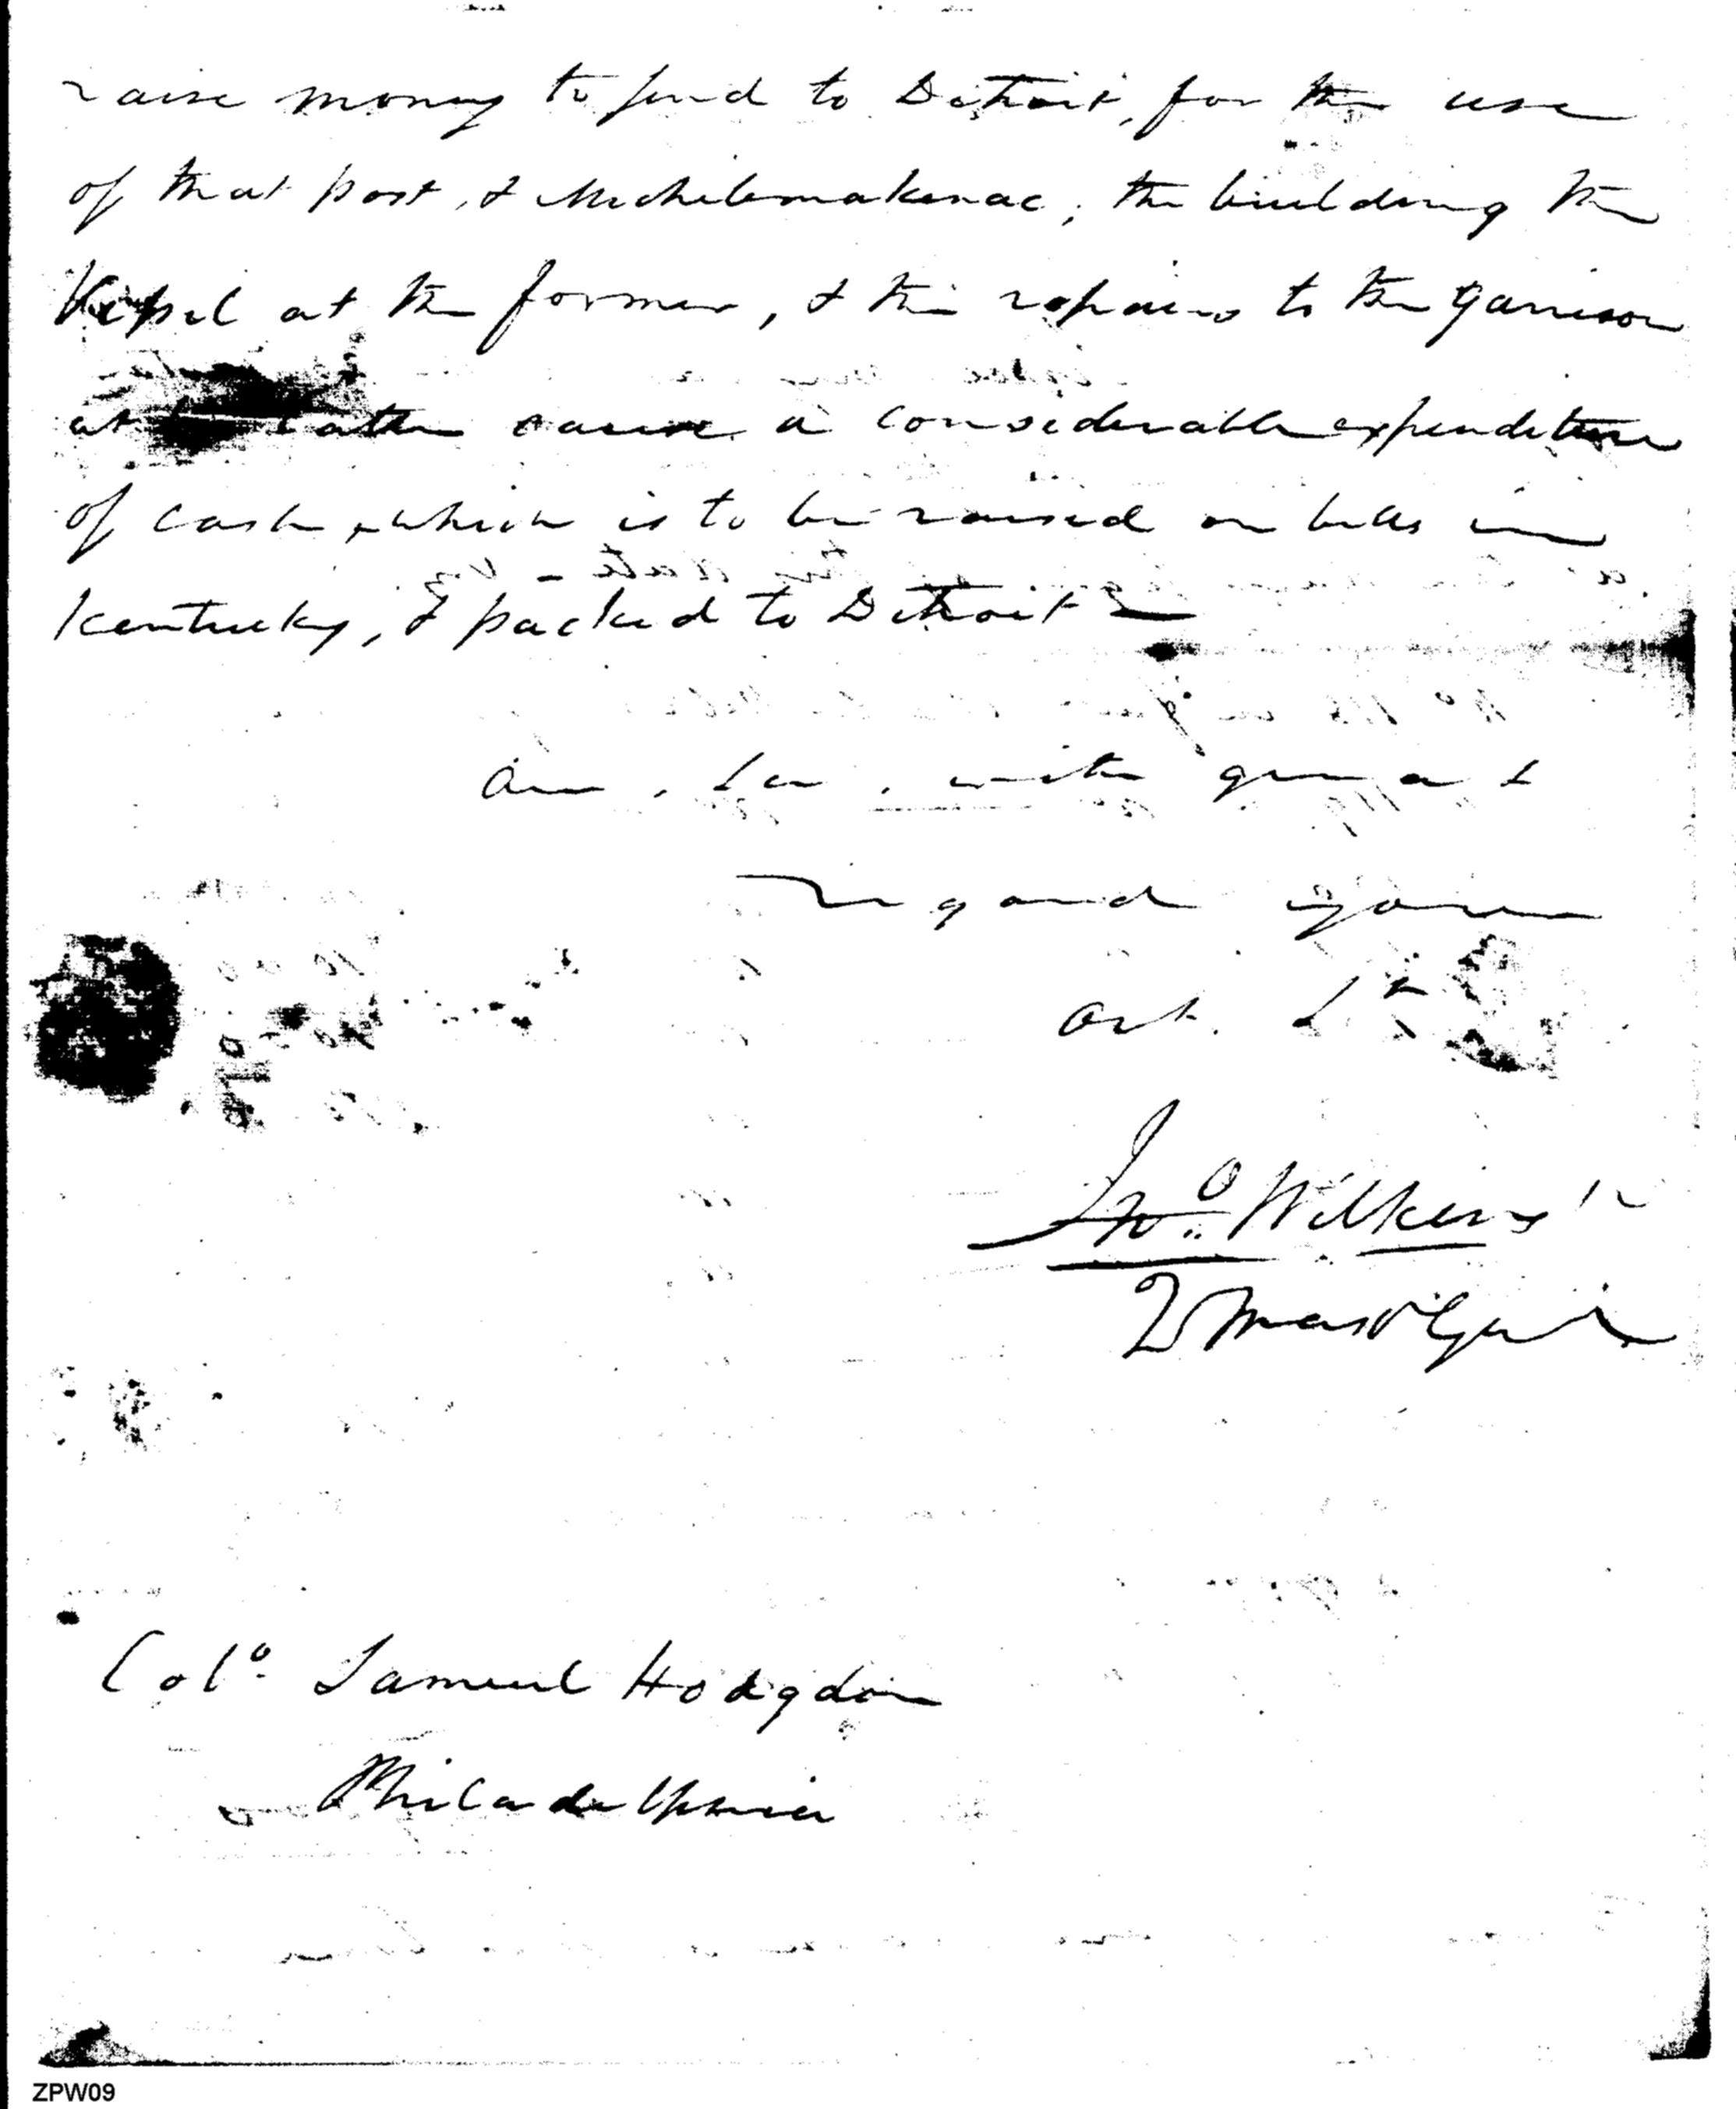 raise money to send to Detroit, for the use
of that post, & Michilemakenac, the building the
Vessel at the former, & the repairs to the Garrison
at latter cause a considerable expenditure
of cash, which is to be raised on bills in
Kentucky, & packed to Detroit
am, Sir, with great
regard your
obt. S
Jno Wilkins Jr
Q Mas r Gen
Colo. Samuel Hodgdon
Philadelphia
ZPW09